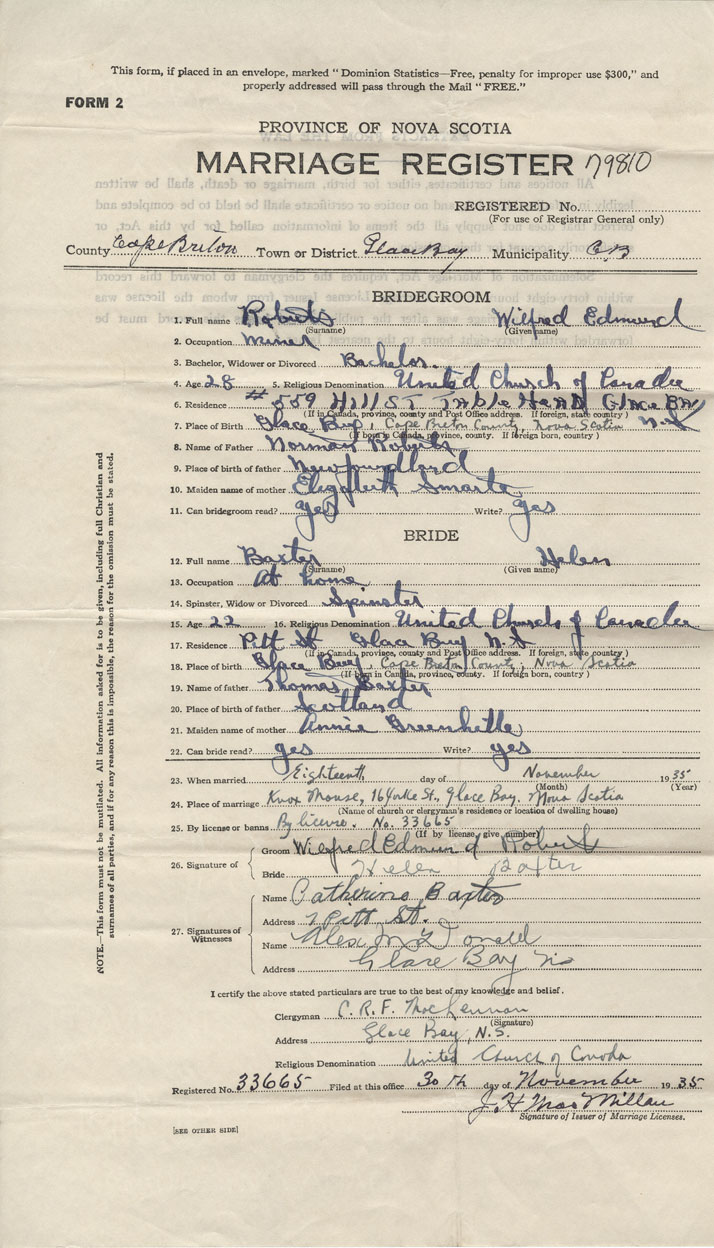 This form, if placed in an envelope, marked "Dominion Statistics—Free, penalty for improper use $300," and
properly addressed will pass through the Mail "FREE."
FORM 2
PROVINCE OF NOVA SCOTIA
MARRIAGE REGISTER 79810
REGISTERED No.
(For use of Registrar General only)
County Cape Breton Town or District Glace Bay Municipality C B
BRIDEGROOM
1. Full name Roberts Wilfred Edmund
(Surname) (Given name)
2. Occupation Miner
3. Bachelor, Widower or Divorced Bachelor.
4. Age 28 5. Religious Denomination United Church of Canada
6. Residence #559 Hill ST Table HEAD Glace BAy
(If in Canada, province, county and Post Office address. If foreign, state country)
7. Place of Birth Glace Bay, Cape Breton County, Nova Scotia N.S
(If born in Canada, province, county. If foreign born, country)
8. Name of Father Norman Roberts
9. Place of birth of father Newfoundland
10. Maiden name of mother Elizabeth Smarte
11. Can bridegroom read? yes Write? yes
BRIDE
12. Full name Baxter Helen
(Surname) (Given name)
13. Occupation At home
14. Spinster, Widow or Divorced Spinster
15. Age 22 16. Religious Denomination United Church of Canada
17. Residence Pitt St Glace Bay N.S
(If in Canada, province, county and Post Office address. If foreign, state country)
18. Place of birth Glace Bay, Cape Breton County, Nova Scotia
(If born in Canada, province, county. If foreign born, country)
19. Name of father Thomas Baxter
20. Place of birth of father Scotland
21. Maiden name of mother Annie
22. Can bride read? yes Write? yes
23. When married Eighteenth day of November 1935
(Month) (Year)
24. Place of marriage Knox Manse, 16 Yorke St., Glace Bay, Nova Scotia
(Name of church or clergyman's residence or location of dwelling house)
25. By license or banns By license. No. 33665
(If by license, give number)
26. Signature of
Groom Wilfred Edmund Roberts
Bride Helen Baxter
27. Signatures of Witnesses
Name Catherine Baxter
Address Pitt St.
Name Alex McDonald
Address Glace Bay NS
I certify the above stated particulars are true to the best of my knowledge and belief.
Clergyman C. R. F. MacLennan
(Signature)
Address Glace Bay, N.S.
Religious Denomination United Church of Canada
Registered No. 33665 Filed at this office 30th day of November 1935
J. H MacMillan
Signature of Issuer of Marriage Licenses.
[SEE OTHER SIDE]
NOTE.—This form must not be mutilated. All information asked for is to be given, including full Christian and
surnames of all parties, and if for any reason this is impossible, the reason for the omission must be stated.